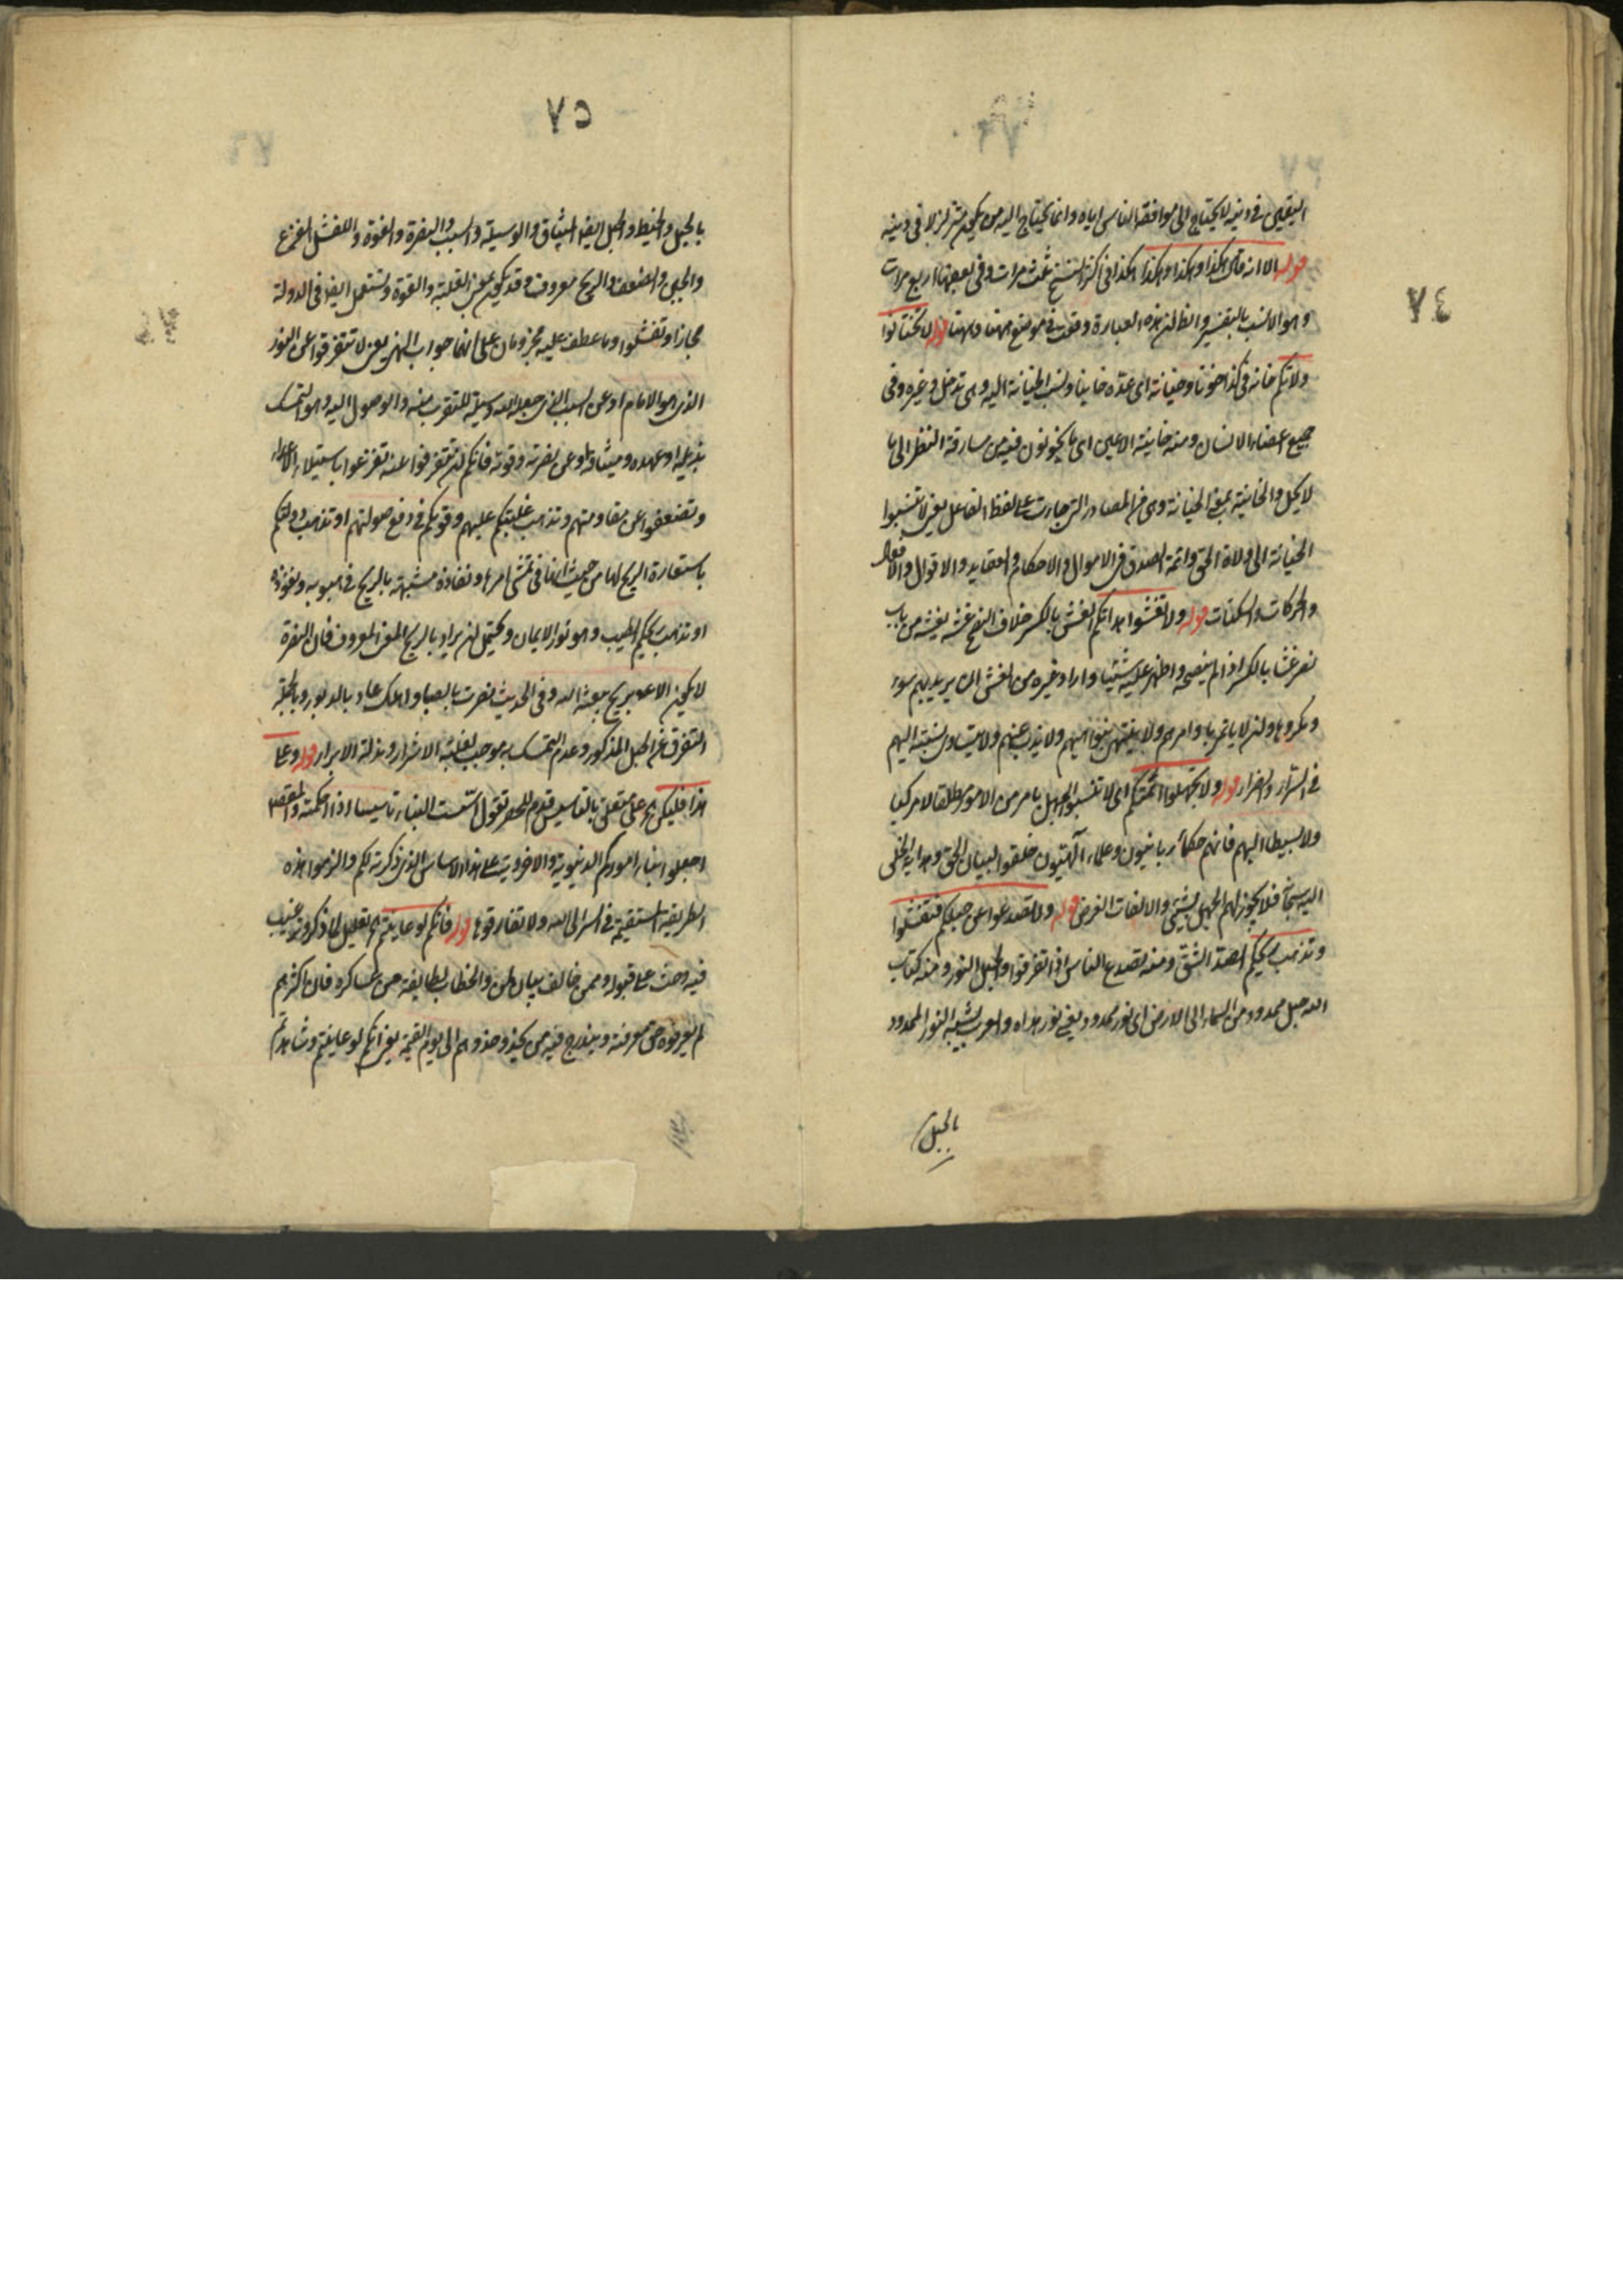 ٧٤
اليقين في دينه لا يحتاج الى موافقة الناس اياه وانما يحتاج اليه من يكون متزلزلا في دينه
قوله الا انه قال هكذا وهكذا وهكذا هكذا في اكثر النسخ ثلث مرات وفي بعضها اربع مرات
وهو الانسب بالتفسير والظ ان هذه العبارة وقعت في موضع قوله لا تختانوا
ولاتكم خانه في كذا خونا وخيانة اى عده خاينا ونسب الخيانة اليه وهى تدخل في غيره وفى
جميع اعضاء الانسان ومنه خاينة الاعين اى ما يخونون فيه من مسارقة النظر الى ما
لا يحل والخاينة بمعنى الخيانة وهى من المصادر التى جاءت على لفظ الفاعل يعنى لا تنسبوا
الخيانة الى ولاة الحق وائمة الصدق في الاموال والاحكام والعقايد والاقوال والافعال
والحركات والسكنات قوله ولا تغشوا هداتكم الغش بالكسر خلاف النصح غشه يغشه من باب
نصر غشا بالكسر اذا لم ينصحه واظهر عليه شيئا واراد غيره ومن الغش ان يريد بهم سوء
ومكروها وان لا ياتمر باوامرهم ولا ينتهى بنواهيهم ولا يذب عنهم ولا نسبته اليهم
في السراء والضراء قوله ولا تجهلوا ائمتكم اى لا تنسبوا الجهل بامر من الامور مطلقا لا مركبا
ولا بسيطا اليهم فانهم حكماء ربانيون وعلماء الهيون خلقوا لبيان الحق وهداية الخلق
اليه سبحانه فلا يجوز لهم الجهل بشئ والا لفات الغرض قوله ولا تصدعوا عن حبلكم فتفشلوا
وتذهب ريحكم الصدع الشق ومنه تصدع الناس اذا تفرقوا والحبل النور ومنه كتاب
الله حبل ممدود من السماء الى الارض اى نور ممدود يعنى نور هداه والعرب تشبه النور الممدود
بالحبل
٧٥
بالحبل والخيط والحبل ايضا الميثاق والوسيلة والسبب والنصرة والقوة والفشل الفزع
والجبن والضعف والريح معروف وقد يكون بمعنى الغلبة والقوة وتستعمل ايضا في الدولة
مجازا وتفشلوا وما عطف عليه مجزومان على انها جواب النهى يعنى لا تتفرقوا عن النور
الذى هو الامام او عن السبب الذى جعله الله وسيلة للتقرب منه والوصول اليه وهو التمسك
بذيله او عهده وميثاقه او عن نصرته وقوته فانكم ان تتفرقوا عنه تفزعوا باستيلاء الاعداء
وتضعفوا عن مقاومتهم وتذهب غلبتكم عليهم وقوتكم في دفع صولتهم او تذهب دولتكم
باستعارة الريح لها من حيث انها في تمشى امرها ونفاذه مشبهة بالريح في هبوبه ونفوذه
او تذهب ريحكم الطيب وهو نور الايمان ويحتمل ان يراد بالريح المعنى المعروف فان النصرة
لا يكون الا بريح يبعثه الله وفى الحديث نصرت بالصبا واهلك عاد بالدبور وبالجملة
التفرق عن الحبل المذكور وعدم التمسك به موجب لغلبة الاشرار ومذلة الابرار قوله وعلى
هذا فليكن على متعلق بالتاسيس قدم للحصر تقول اسست البناء تاسيسا اذا احكمته والمقصود
اجعلوا بناء اموركم الدنيوية والاخروية على هذا الاساس الذى ذكرته لكم والزموا هذه
الطريقة المستقيمة في السر الى الله ولا تفارقوها قوله فانكم لو عاينتم تعليل لما ذكر وترغيب
فيه وحث على قبوله وممن خالف بيان لمن والخطاب لطايفة من عساكره فان اكثرهم
لم يعرفوه حق معرفته ويندرج فيه من يحذو حذوهم الى يوم القيمة يعنى انكم لو عاينتم وشاهدتم